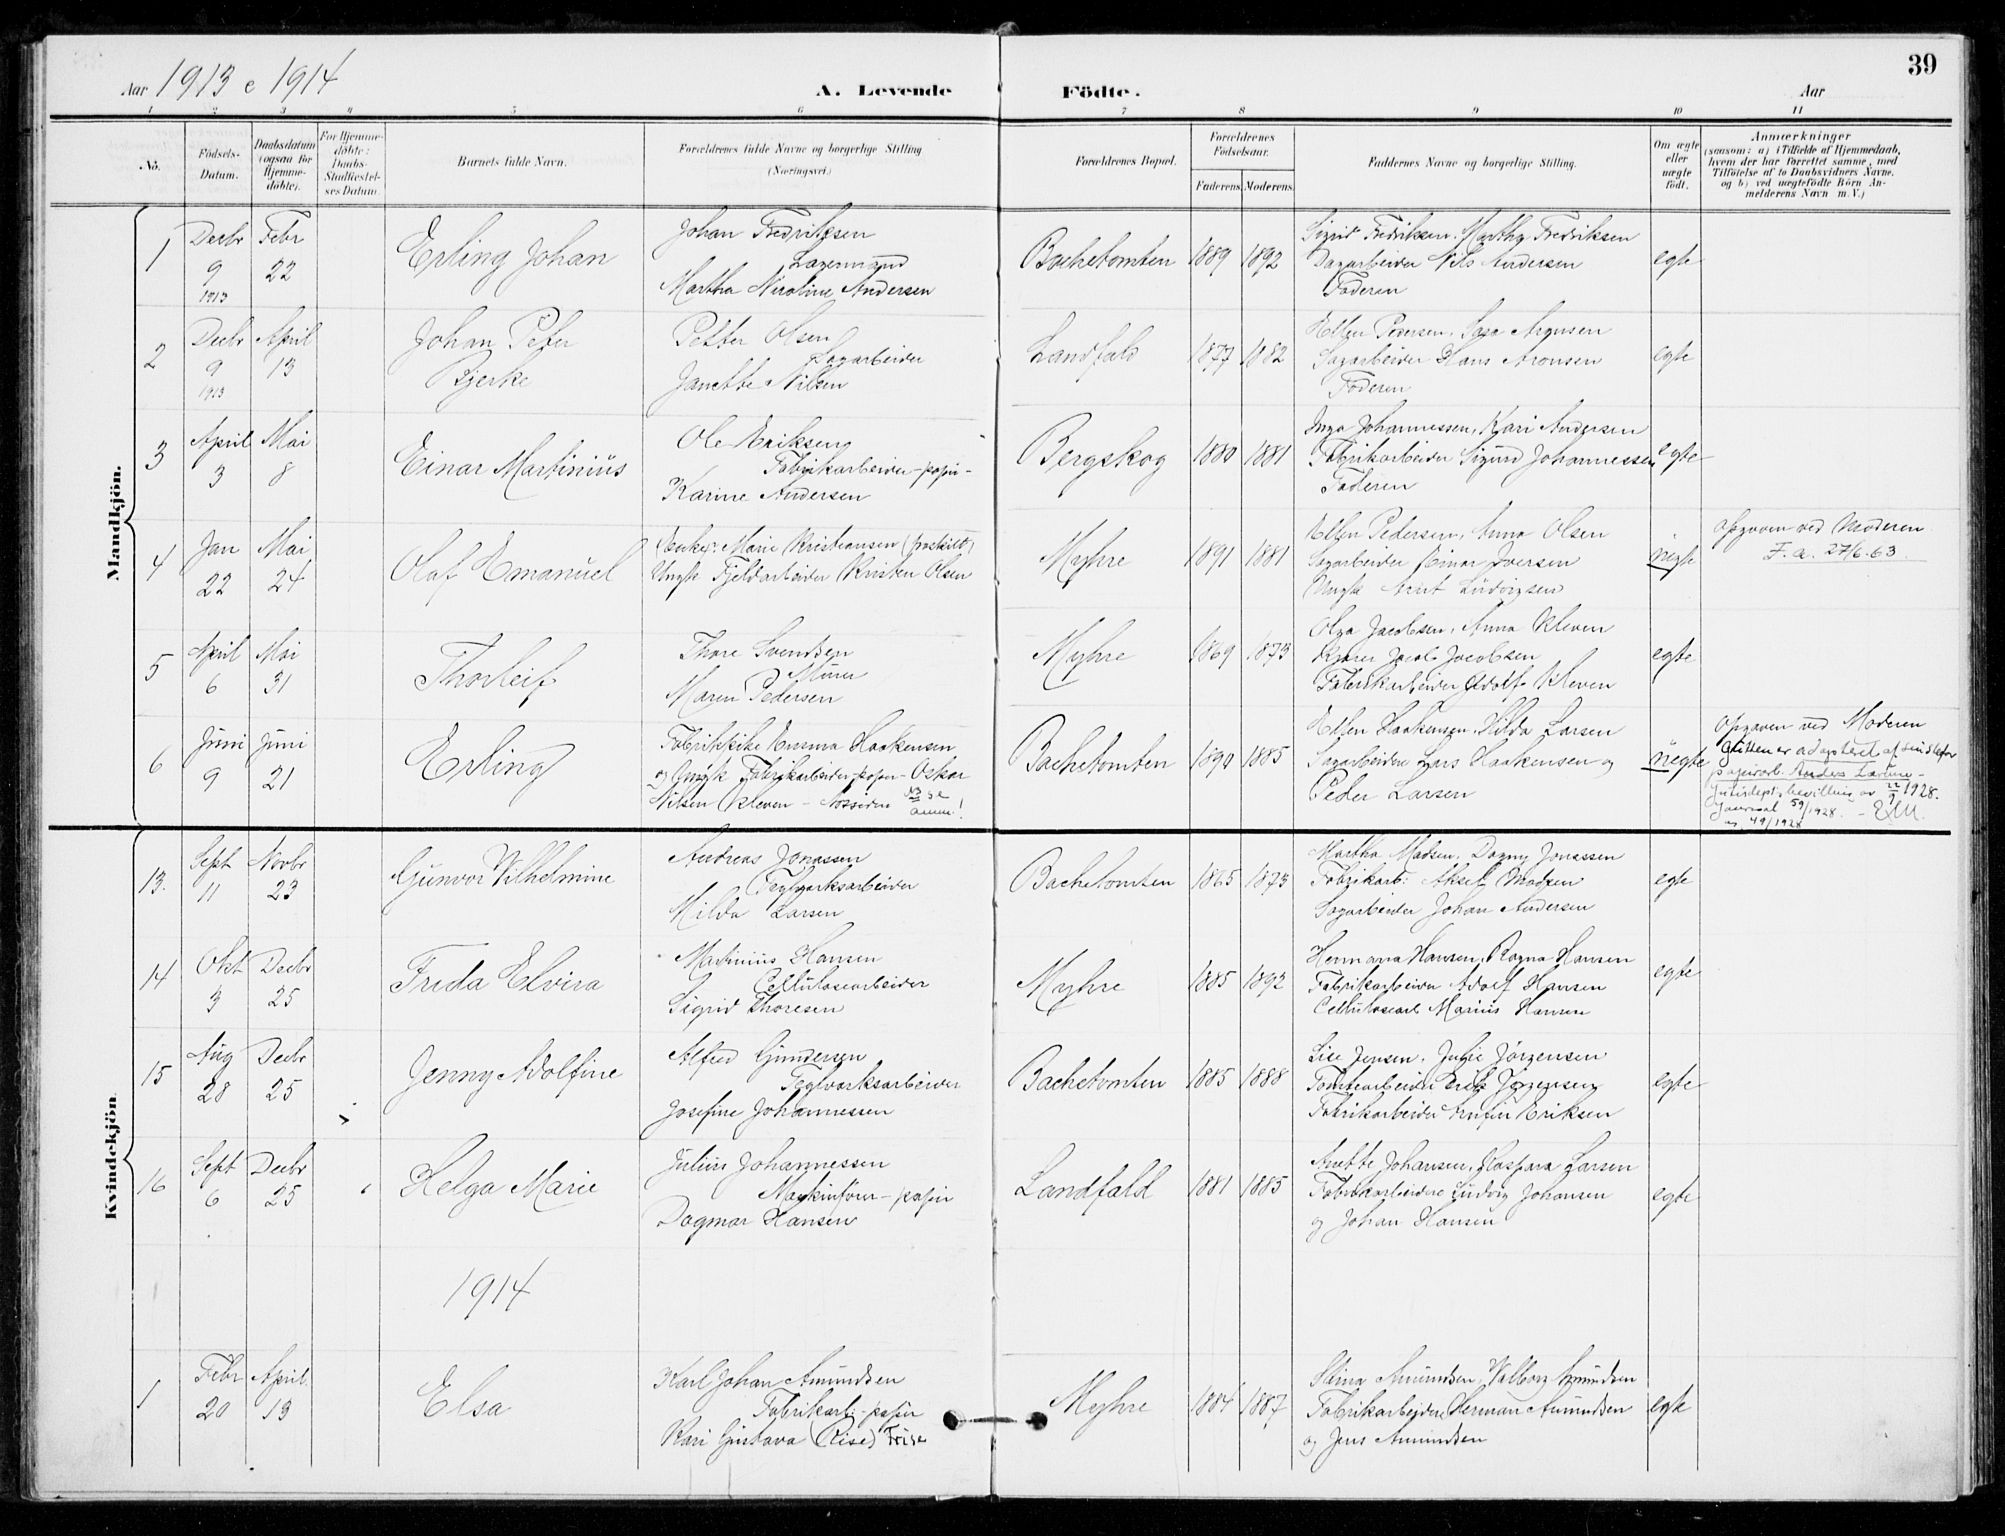 39
Aar 1913 & 1914
A. Levende Födte.
Aar
1 2 3 4 5 6 7 8 9 10 11
No.
Födsels-Datum.
Daabsdatum (ogsaa for Hjemme-döbte).
For Hjemme-döbte: Daabs-Stadfæstel-ses Datum.
Barnets fulde Navn.
Forældrenes fulde Navne og borgerlige Stilling
(Næringsvei.)
Forældrenes Bopæl.
Forældrenes Födselsaar.
Faderens. Moderens.
Faddernes Navne og borgerlige Stilling.
Om ægte eller uægte födt.
Anmærkninger
(saasom: a) i Tilfælde af Hjemmedaab,
hvem der har forrettet samme, med
Tilföielse af to Daabsvidners Navne,
og b) ved uægtefödte Börn An-
melderens Navn m. V.)
Mandkjön.
1 Decbr 9 1913 Febr 22 Erling Johan
Johan Fredriksen
Lagermand
Martha Nicoline Andersen
Bachetomten 1889 1892
Sigrid Fredriksen, Martha Fredriksen
Dagarbeider Nils Andersen
Faderen
egte
2 Decbr 9 1913 April 13 Johan Peter
Bjerke
Petter Olsen
Sagarbeider
Janette Nilsen
Landfald 1877 1882
Ellen Pedersen,
Sagarbeider Hans Aronsen
Faderen
egte
3 April 3 Mai 8 Einar Martinius
Ole Eriksen
Fabrikarbeider - papir -
Karine Andersen
Bergskog 1880 1881
Inga Johannessen, Kari Andersen
Fabrikarbeider Sigurd Johannessen
Faderen
egte
4 Jan 22 Mai 24 Olaf Emanuel
Enke: Marie Kristiansen (fraskilt)
Ungk Fjeldarbeider Kristen Olsen
Myhre 1891 1881
Ellen Pedersen, Anna Olsen
Sagarbeider Einar Iversen
Ungk Arnt Ludvigsen
uegte
Opgaven ved Moderen
F. a. 27/6.63.
5 April 6 Mai 31 Thorleif
Thore Svendsen
Murer
Maren Pedersen
Myhre 1869 1873
Olga Jacobsen, Anna Kleven
Kjører Jacob Jacobsen
Fabrikarbeider Adolf Kleven
egte
6 Juni 9 Juni 21 Erling
Fabrikpike Emma Haakensen
og Ungk Fabrikarbeider papir - Oskar
Nilsen Kleven - Assiden NB se anm!
Bachetomten 1890 1885
Ellen Haakensen, Hilda Larsen
Sagarbeider Lars Haakensen og
Peder Larsen
uegte
Opgaven ved Moderen
Gutten er adoptert af
papirarb. Anders
Justisdepts bevilling av 22/9 1928.
Journal 59/1928.
49/1928
Kvindekjön
13. Sept 11 Novbr 23 Gunvor Vilhelmine
Andreas Jonassen
Teglverksarbeider
Milda Larsen
Bachetomten 1865 1873
Martha Madsen, Dagny Jonassen
Fabrikarb: Aksel Madsen
Sagarbeider Johan Andersen
egte
14 Okt 3 Decbr 25 Frida Elvira
Martinius Hansen
Cellulosearbeider
Sigrid Thoresen
Myhre 1885 1892
Hermana Hansen, Ragna Hansen
Fabrikarbeider Adolf Hansen
Cellulosearb Marius Hansen
egte
15 Aug 28 Decbr 25 Jenny Adolfine
Alfred Gundersen
Teglverksarbeider
Josefine Johannessen
Bachetomten 1885 1888
Lise Jensen, Julie Jørgensen
Tomtearbeider Erik Jørgensen
Fabrikarbeider Arnfin Eriksen
egte
16 Sept 6 Decbr 25 Helga Marie
Julius Johannessen
Maskinfører - papir
Dagmar Hansen
Landfald 1881 1885
Anette Johansen, Kaspara Larsen
Fabrikarbeidere Ludvig Johansen
og Johan Hansen
egte
1914
1 Febr 20 April 13 Elsa
Karl Johan Amundsen
Fabrikarb: - papir
Kari Gustava (Rise) Frise
Myhre 1884 1887
Stina Amundsen, Valborg Amundsen
Fabrikarbeidere Herman Amundsen
og Jens Amundsen
egte